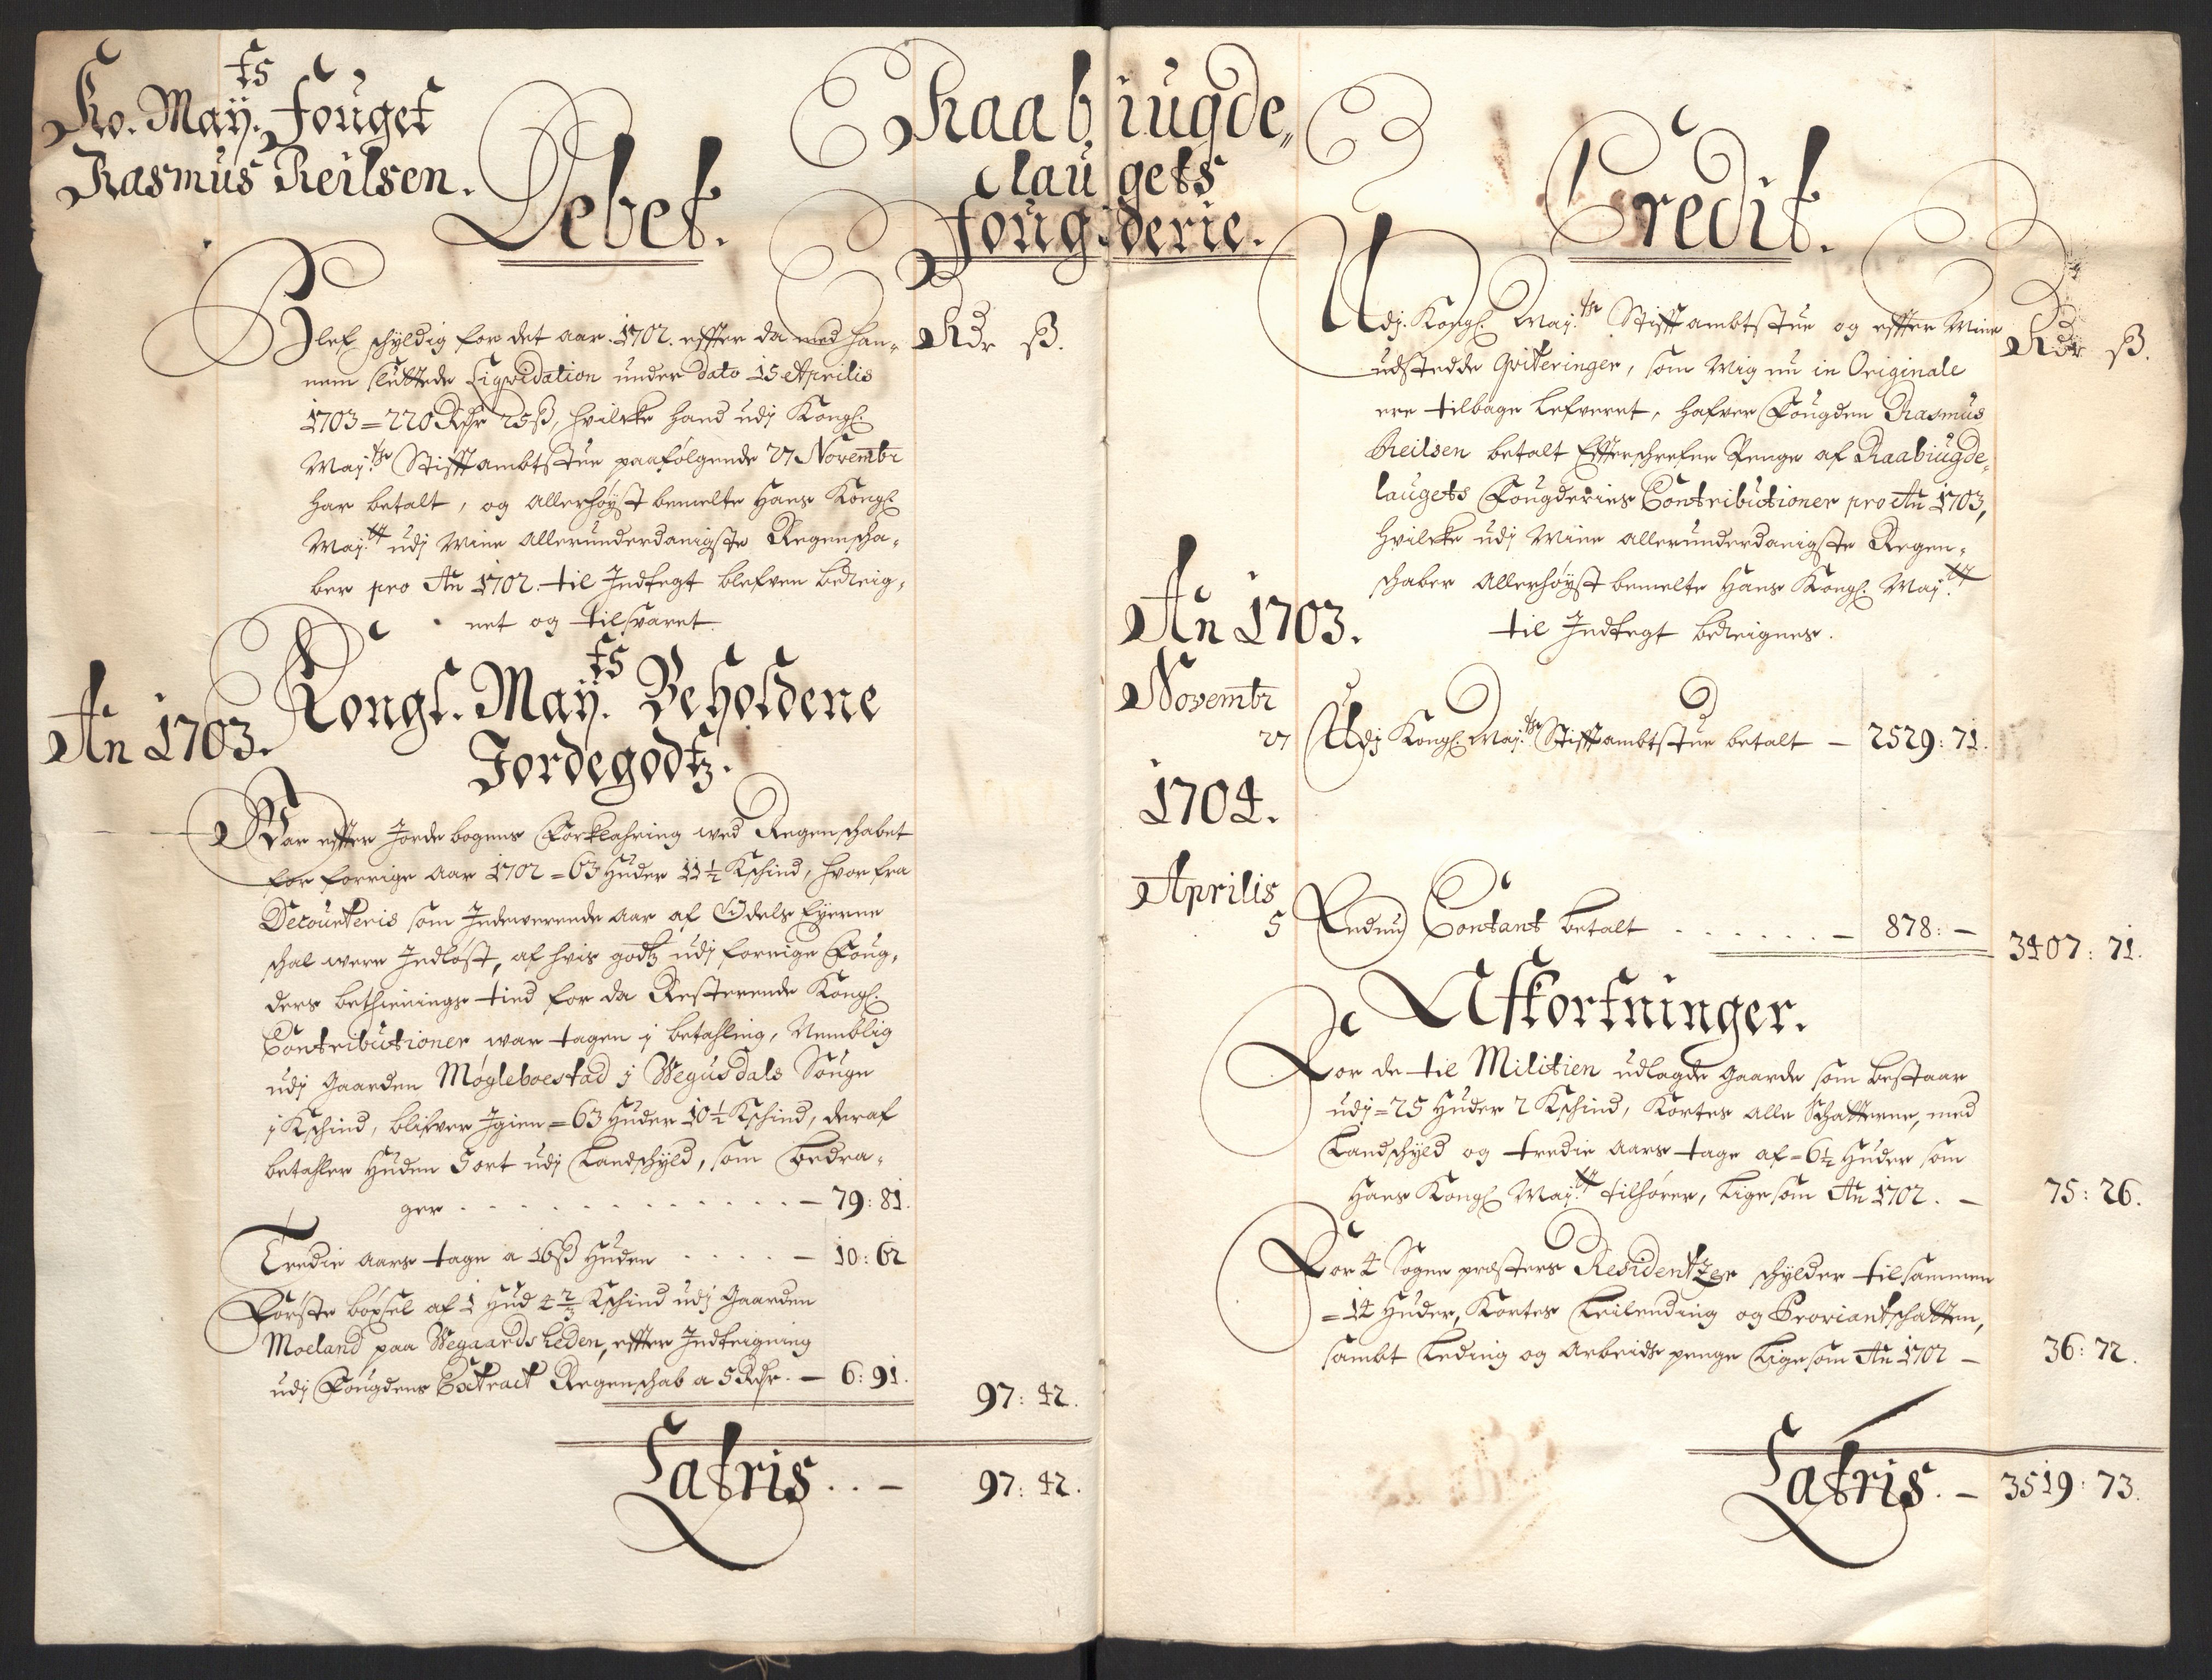 Ko. Maÿ.ts Fouget
Rasmus Reilsen.
Debet.
Raabiugde„
laugets
Fougderie.
Rdr ß.
Blef schyldig for det aar 1702. effter da med han„
nem sluttede Liqvidation under dato 15 Aprilis
1703 = 220 Rdr 25 ß, hvilcke hand udj Kongl.
Maj.ts Stifftambtstue paafølgende 27 Novembr
har betalt, og allerhøyst bemelte Hans Kongl
Maj.tt udj Mine allerunderdanigste Regenscha„
ber pro Aõ 1702. til Indtegt blefven bereig„
net og tilsvaret.
An 1703.
Kongl. Maÿ.ts Beholdene
Jordegodtz.
War effter Jordebogens Forklahring wed Regenschabet
for forrige aar 1702 = 63 Huder 11½ Kschind, hvorfra
Decourteris som Indewerende aar af Odels Eyerne
schal were Indløst, af hvis godtz udj forrige Foug„
ders bethienings tiid for da Resterende Kongl.
Contributioner war tagen j betahling, Nemblig
udj Gaarden Møgleboestad j Wegusdals Sougn
1 Kschind, blifver Igien = 63 Huder 10½ Kschind, deraf
betahler Huden 5 ort udj Landschyld, som bedra„
ger . . . . . . . . . . . . — 79: 81.
Tredie aars tage a 16 ß Huden . . . . — 10: 62
Første böxsel af 1 Hud 4⅔ Kschind udj Gaarden
Moeland paa Wegaards heden, effter Indteigning
udj Fougdens Extract Regenschab a 5 Rdr. — 6: 91.
97: 42.
Latris . . — 97: 42.
Credit.
Rdr ß.
Udj Kongl. Maj.ts Stifftambtstue og effter Mine
udstedde qviteringer, som Mig nu in Originale
ere tilbage lefveret, hafver Fougden Rasmus
Reilsen betalt Effterschrefne Penge af Raabiugde„
laugets Fougderies Contributioner pro An 1703,
hvilcke udj Mine allerunderdanigste Regen„
schaber allerhøyst bemelte Hans Kongl. Maj.tt
til Indtegt bereignes.
An 1703.
Novembr
27 Udj Kongl. Maj.ts Stifftambtstue betalt — 2529: 71.
1704.
Aprilis
5 Endnu Contant betalt . . . . . . — 878: —
3407: 71.
Afkortninger.
For de til Militien udlagde gaarde som bestaar
udj = 25 Huder 2 Kschind, Kortes alle Schatterne, med
Landschyld og tredie aars tage af = 6½ Huder som
Hans Kongl Maj.tt tilhører, ligesom An 1702. — 75: 26.
For 4 Sogne præsters Residentzer schylder tilsammen
= 14 Huder, Kortes Leilending og Proviantschatten,
sambt Leding og arbeids penge ligesom An 1702 — 36: 72.
Latris. — 3519: 73.